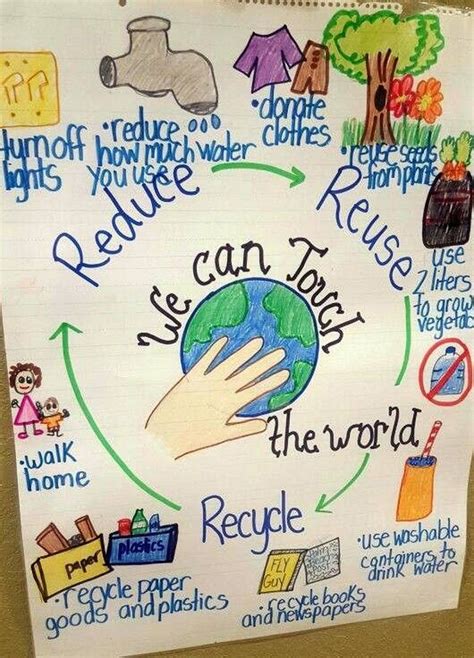 turn off
lights
•reduce
how much water
you use
•donate
clothes
•reuse seeds
from plants
Reduce
Reuse
use
2 liters
to grow
vegetab
We can Touch
the world
•walk
home
Recycle
paper
plastics
•recycle paper
goods and plastics
FLY
GUY
•recycle books
and newspapers
•use washable
containers to
drink water